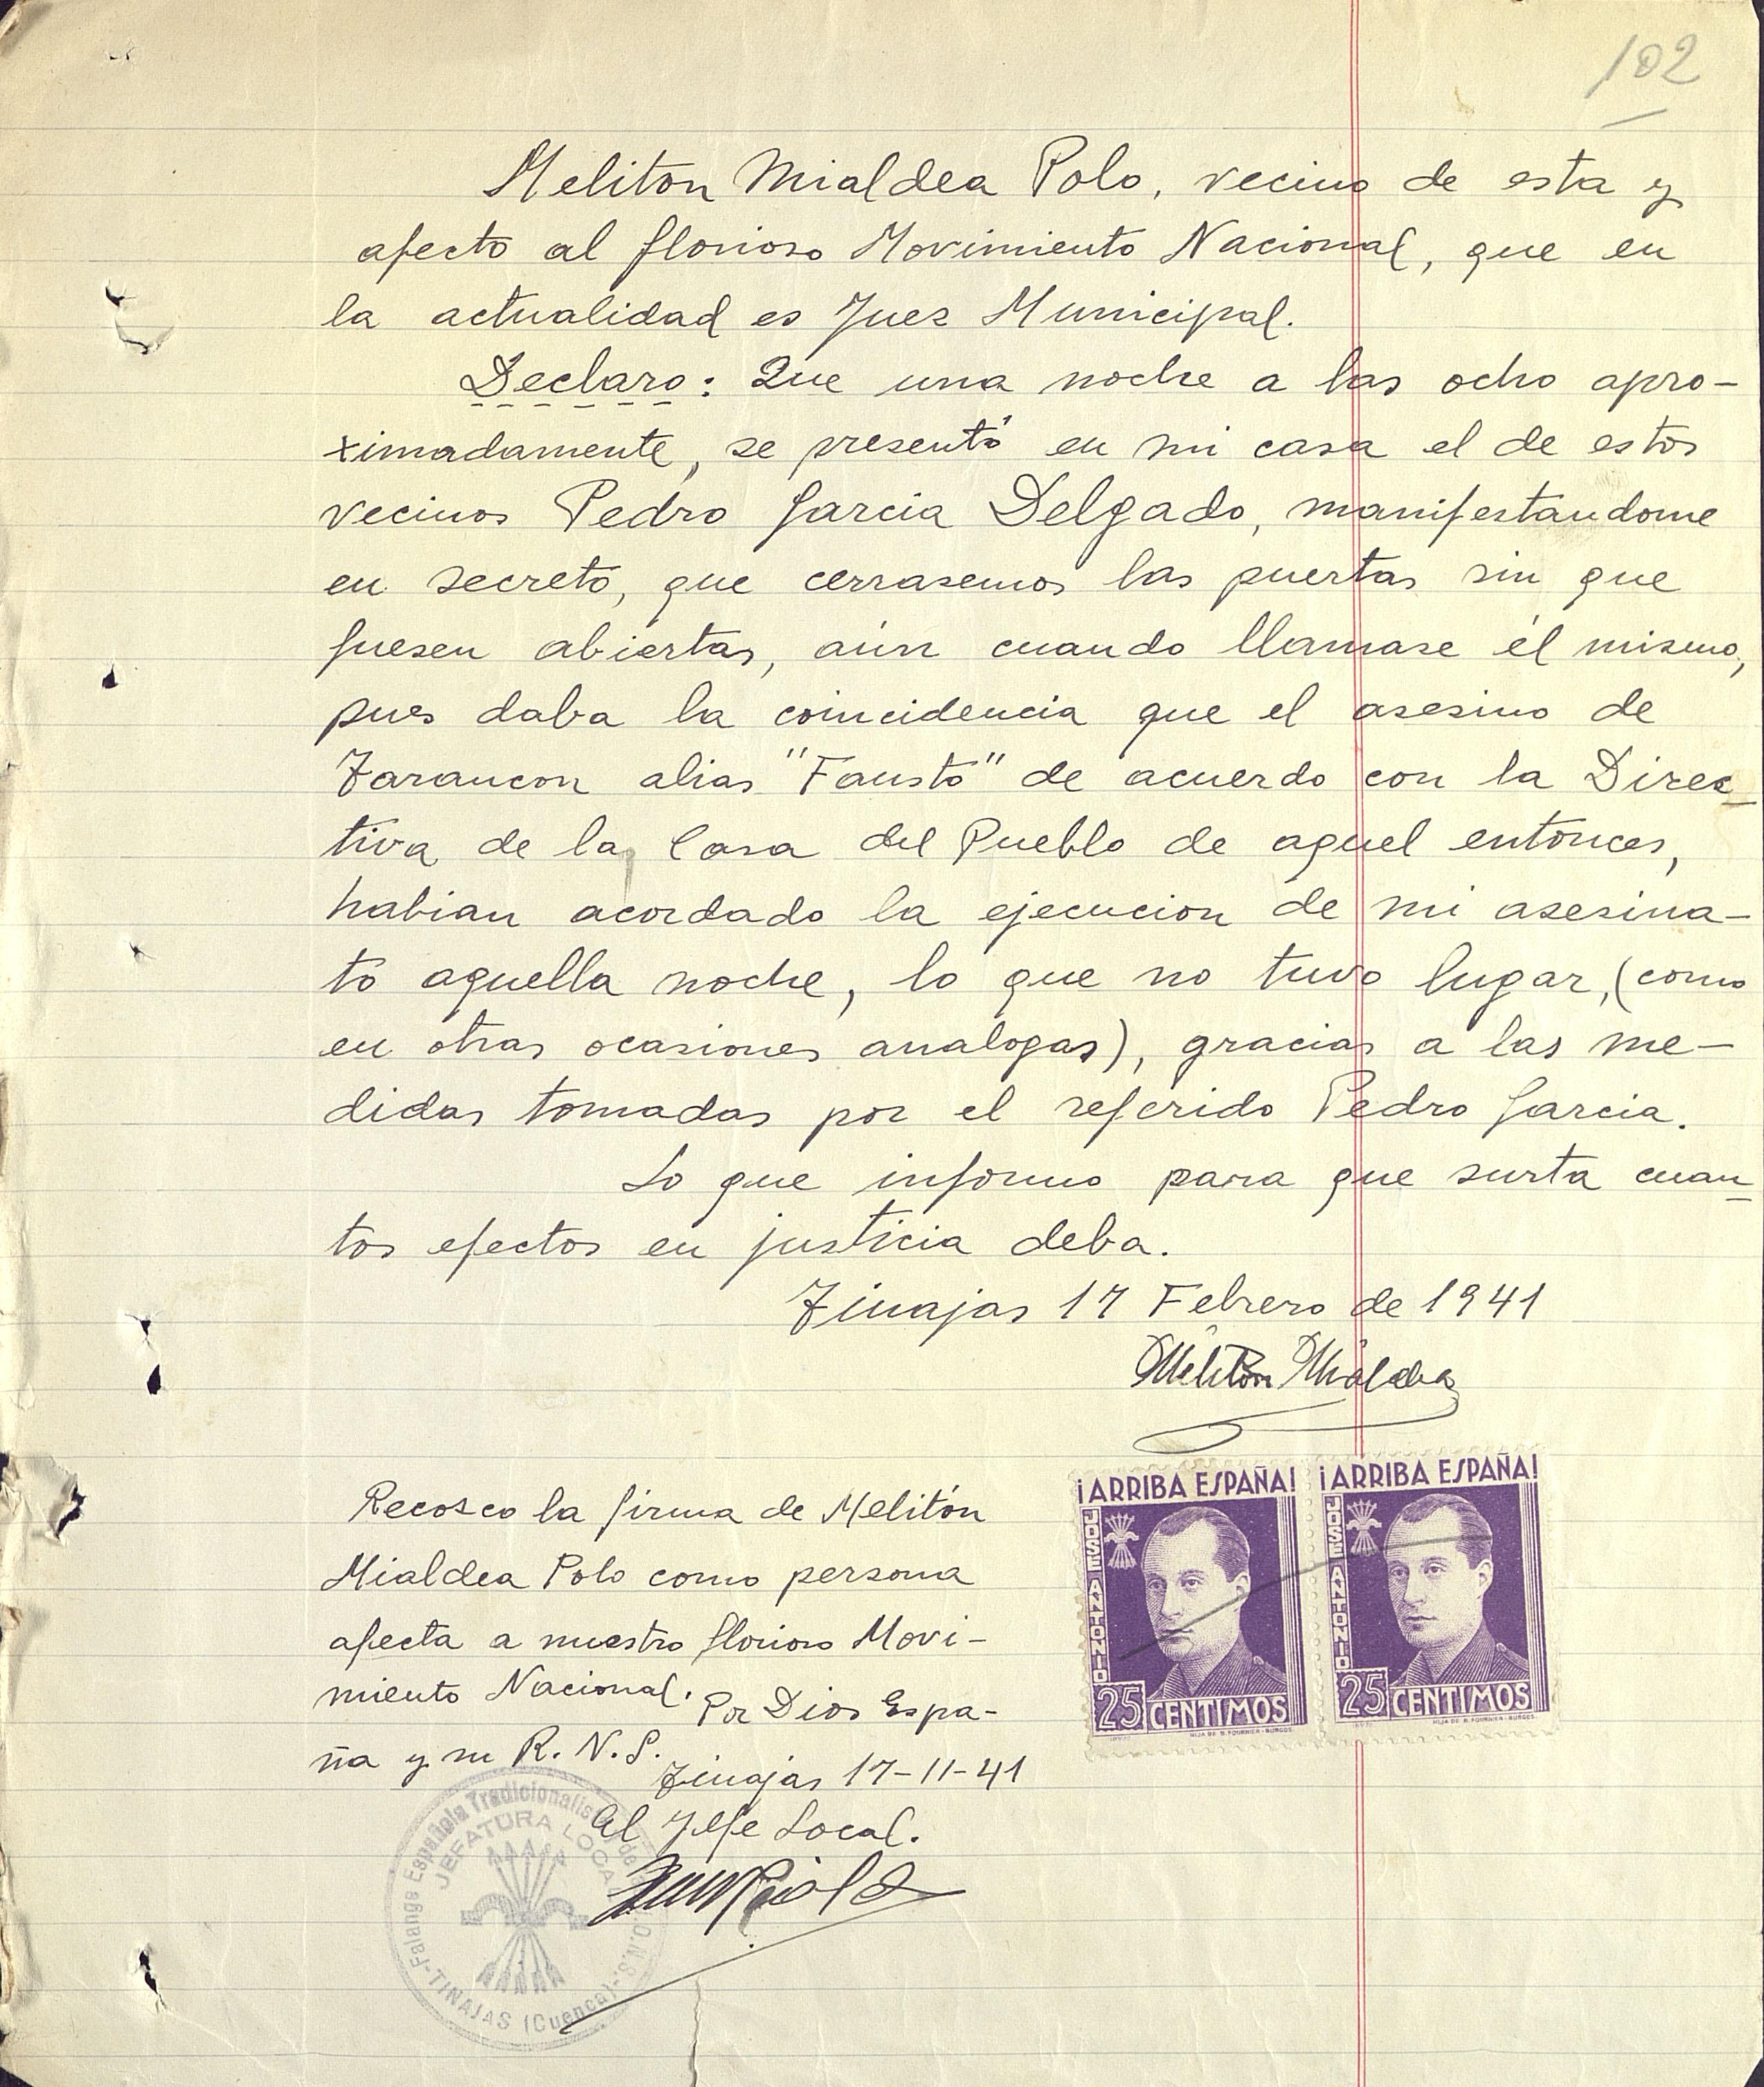 102
Meliton Mialdea Polo, vecino de esta y
afecto al glorioso Movimiento Nacional, que en
la actualidad es Juez Municipal.
Declaro: Que una noche a las ocho apro-
ximadamente, se presentó en mi casa el de estos
vecinos Pedro Garcia Delgado, manifestandome
en secreto, que cerrasemos las puertas sin que
fuesen abiertas, aún cuando llamase él mismo,
pues daba la coincidencia que el asesino de
Tarancon alias "Fausto" de acuerdo con la Direc-
tiva de la Casa del Pueblo de aquel entonces,
habian acordado la ejecucion de mi asesina-
to aquella noche, lo que no tuvo lugar, (como
en otras ocasiones analogas), gracias a las me-
didas tomadas por el referido Pedro Garcia.
Lo que informo para que surta cuan-
tos efectos en justicia deba.
Tinajas 17 Febrero de 1941
Meliton Mialdea
¡ARRIBA ESPAÑA! ¡ARRIBA ESPAÑA!
JOSE ANTONIO JOSE ANTONIO
25 CENTIMOS 25 CENTIMOS
HIJA DE B. FOURNIER-BURGOS. HIJA DE B. FOURNIER-BURGOS.
Recosco la firma de Melitón
Mialdea Polo como persona
afecta a nuestro glorioso Movi-
miento Nacional. Por Dios Espa-
ña y su R. N. S.
Tinajas 17-11-41
El Jefe Local.
Falange Española Tradicionalista y de J.O.N.S.
JEFATURA LOCAL
TINAJAS (Cuenca)